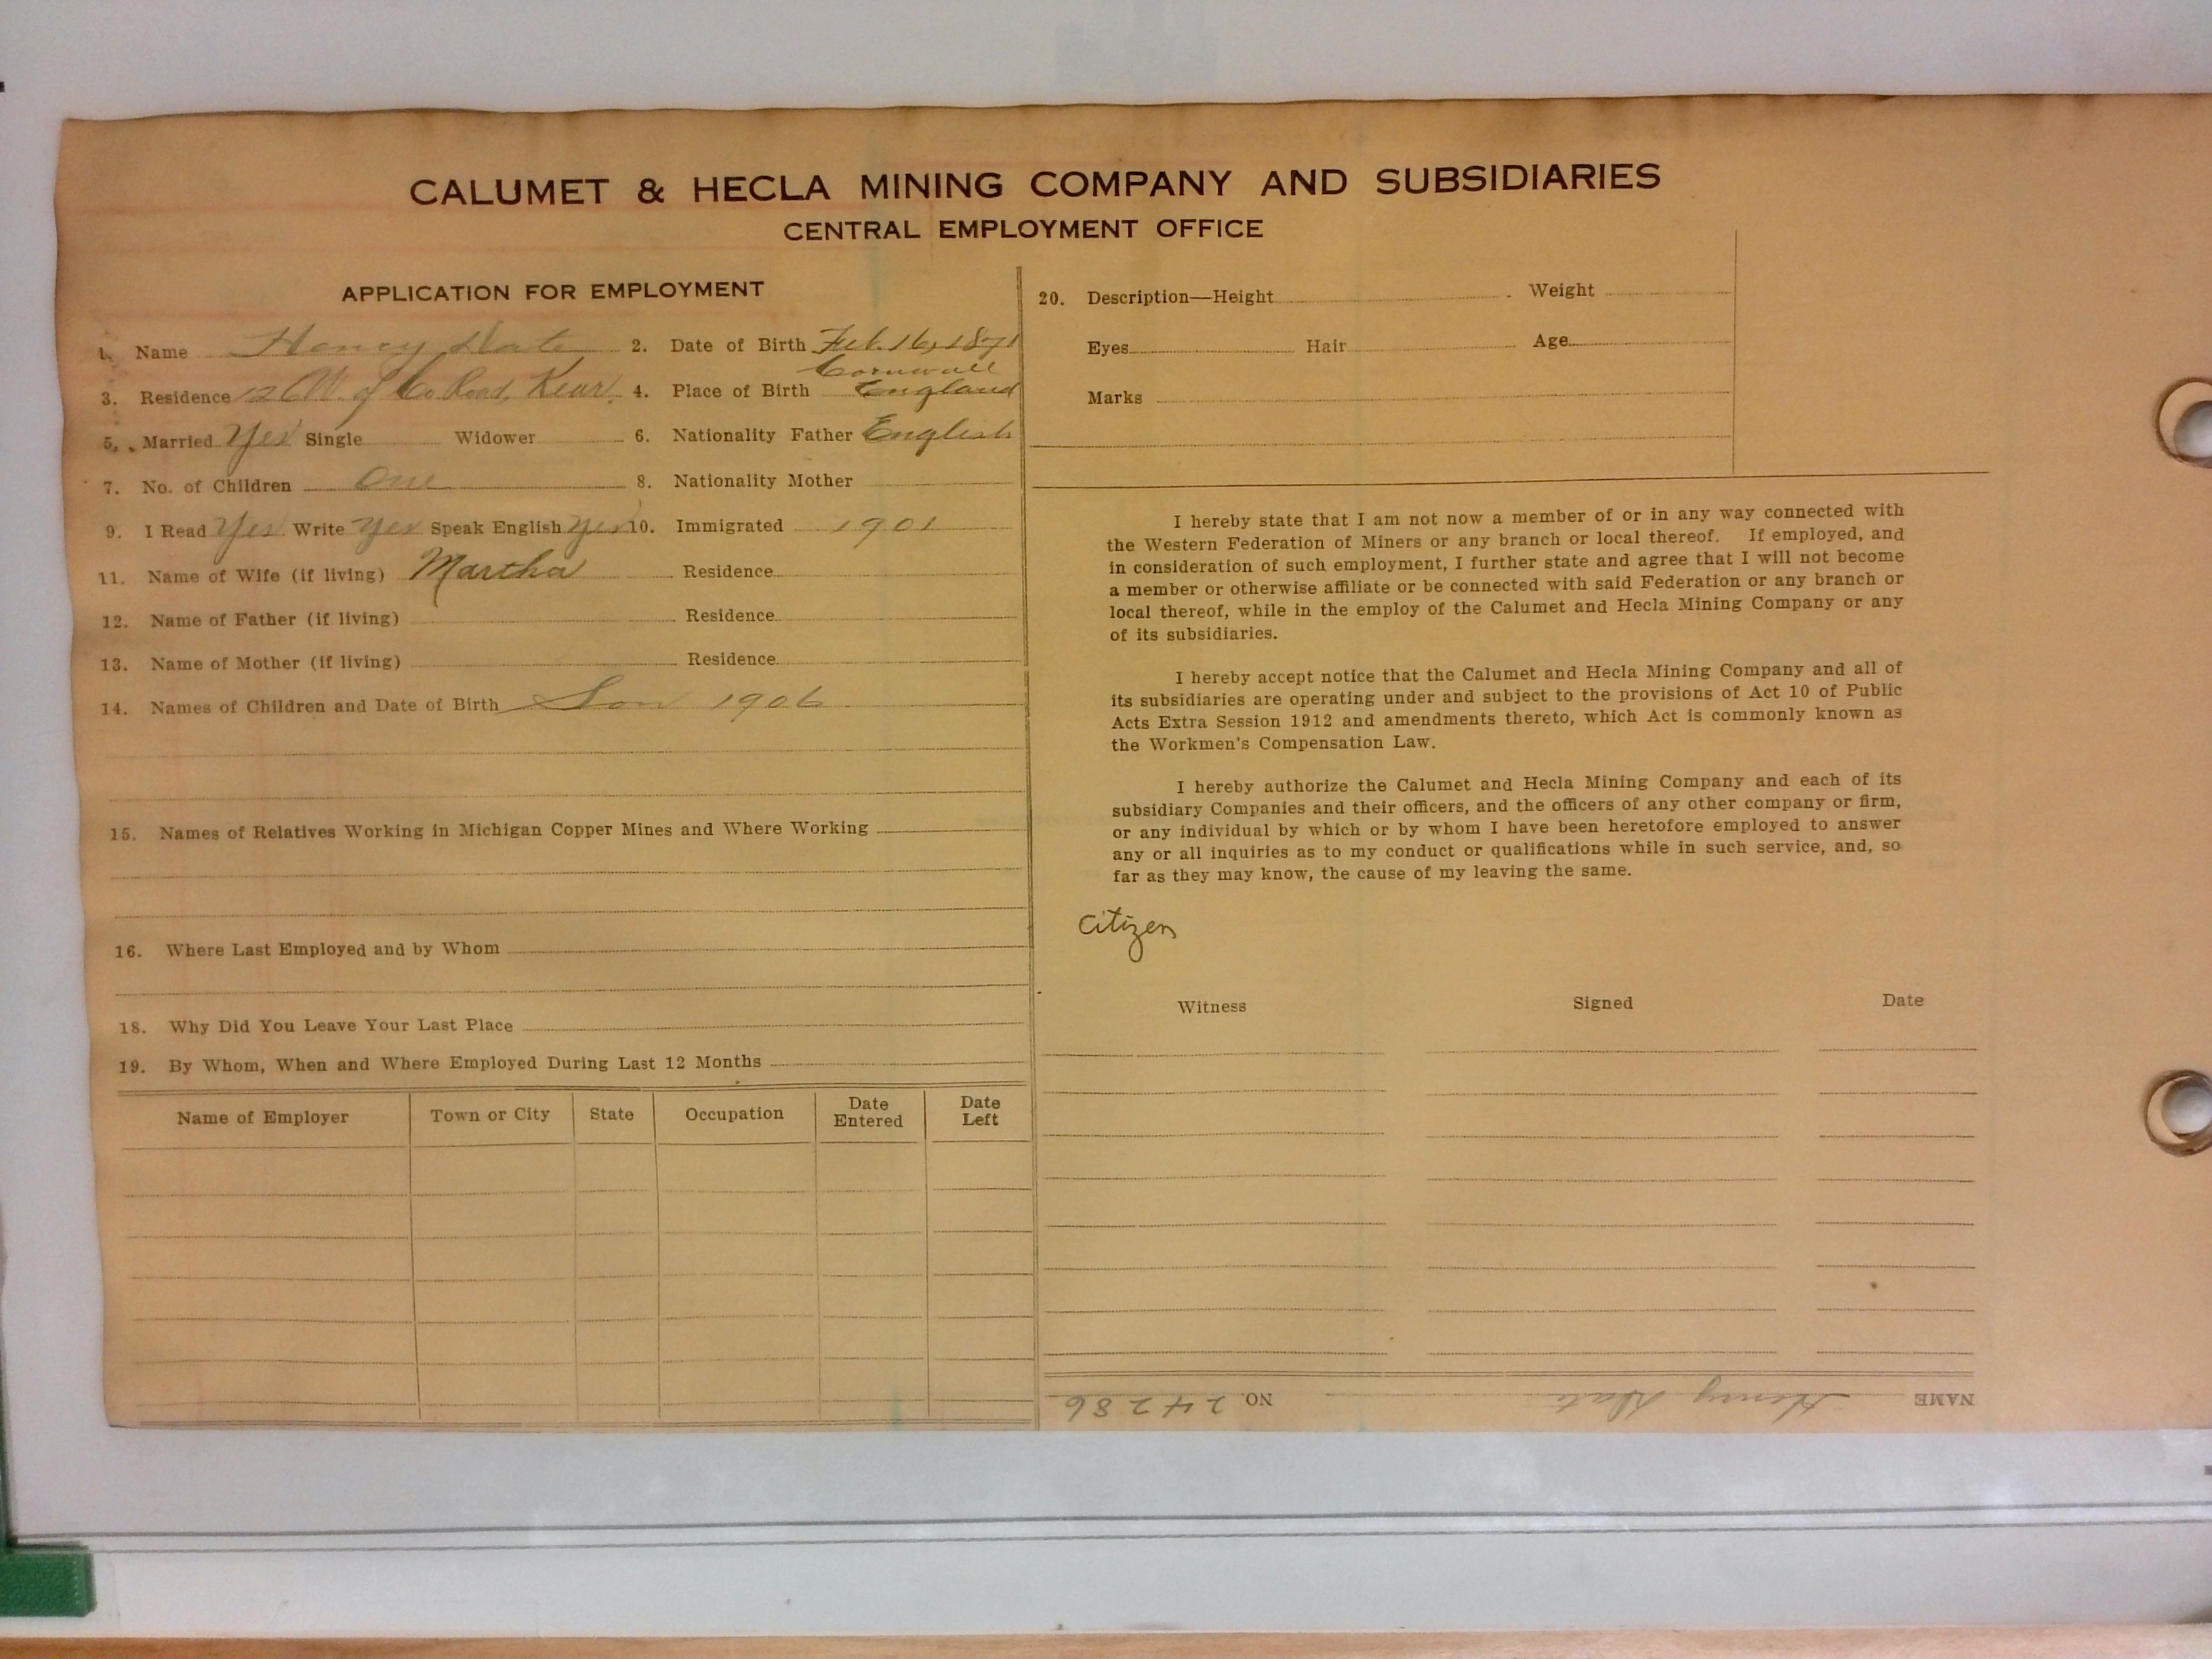 CALUMET & HECLA MINING COMPANY AND SUBSIDIARIES
CENTRAL EMPLOYMENT OFFICE
APPLICATION FOR EMPLOYMENT
1. Name Henry Date 2. Date of Birth Feb. 16, 1871
3. Residence 126 W. of Co Road, Kear. 4. Place of Birth Cornwall England
5. Married Yes Single Widower 6. Nationality Father English
7. No. of Children One 8. Nationality Mother
9. I Read Yes Write Yes Speak English Yes 10. Immigrated 1901
11. Name of Wife (if living) Martha Residence
12. Name of Father (if living) Residence
13. Name of Mother (if living) Residence
14. Names of Children and Date of Birth Son 1906
15. Names of Relatives Working in Michigan Copper Mines and Where Working
16. Where Last Employed and by Whom
18. Why Did You Leave Your Last Place
19. By Whom, When and Where Employed During Last 12 Months
Name of Employer Town or City State Occupation Date Entered Date Left
20. Description—Height Weight
Eyes Hair Age
Marks
I hereby state that I am not now a member of or in any way connected with
the Western Federation of Miners or any branch or local thereof. If employed, and
in consideration of such employment, I further state and agree that I will not become
a member or otherwise affiliate or be connected with said Federation or any branch or
local thereof, while in the employ of the Calumet and Hecla Mining Company or any
of its subsidiaries.
I hereby accept notice that the Calumet and Hecla Mining Company and all of
its subsidiaries are operating under and subject to the provisions of Act 10 of Public
Acts Extra Session 1912 and amendments thereto, which Act is commonly known as
the Workmen's Compensation Law.
I hereby authorize the Calumet and Hecla Mining Company and each of its
subsidiary Companies and their officers, and the officers of any other company or firm,
or any individual by which or by whom I have been heretofore employed to answer
any or all inquiries as to my conduct or qualifications while in such service, and, so
far as they may know, the cause of my leaving the same.
Citizen
Witness Signed Date
NAME Henry Date NO. 24286